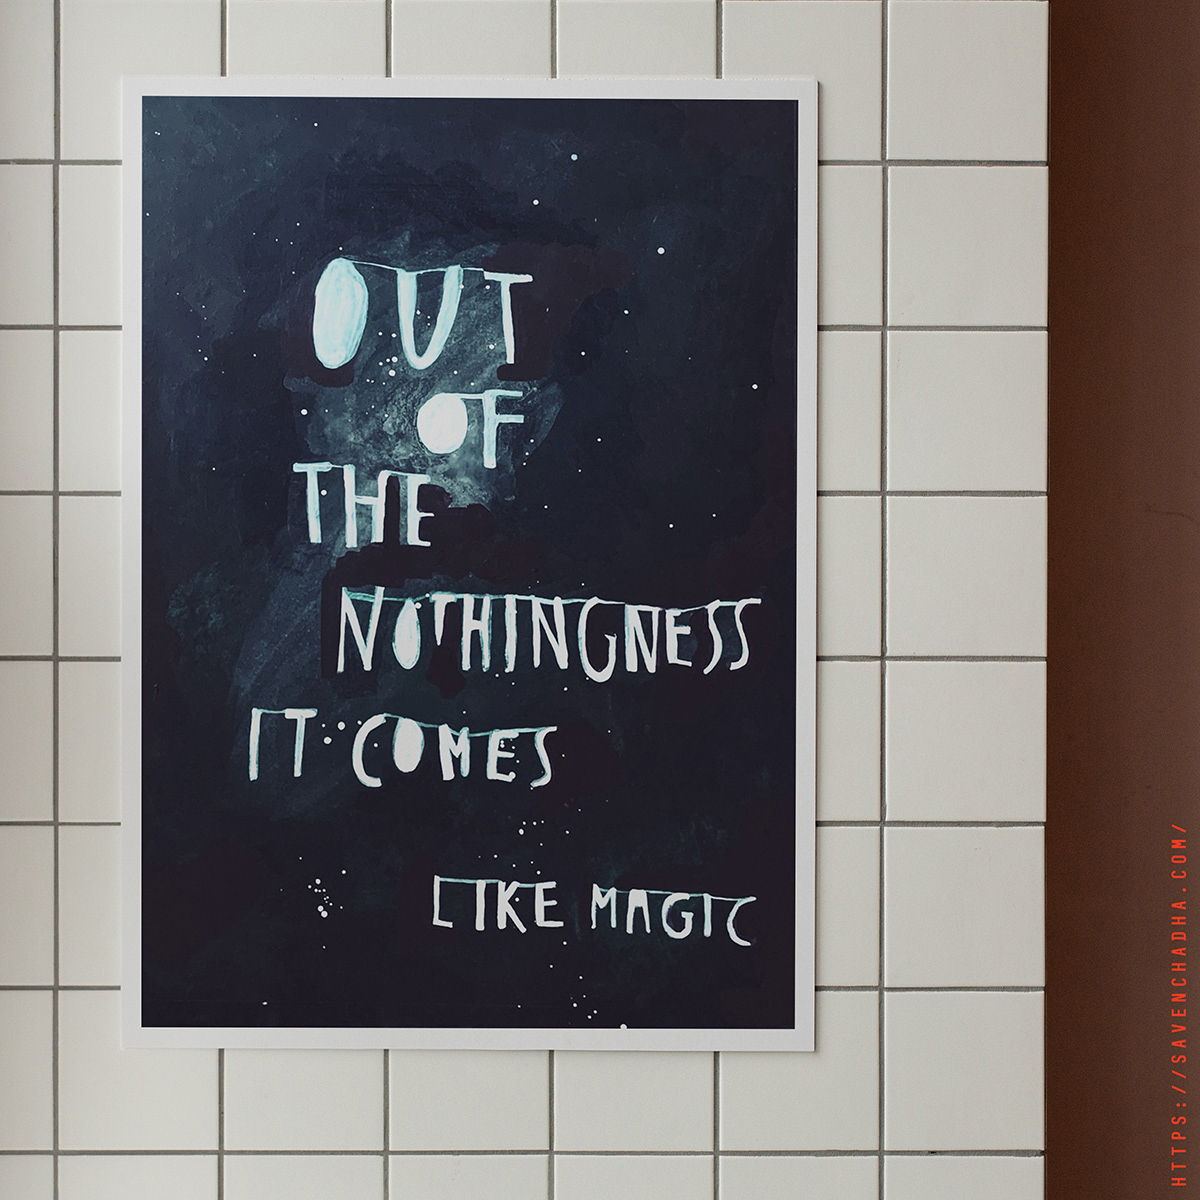 OUT
OF
THE
NOTHINGNESS
IT COMES
LIKE MAGIC
HTTPS://SAVENCHADHA.COM/